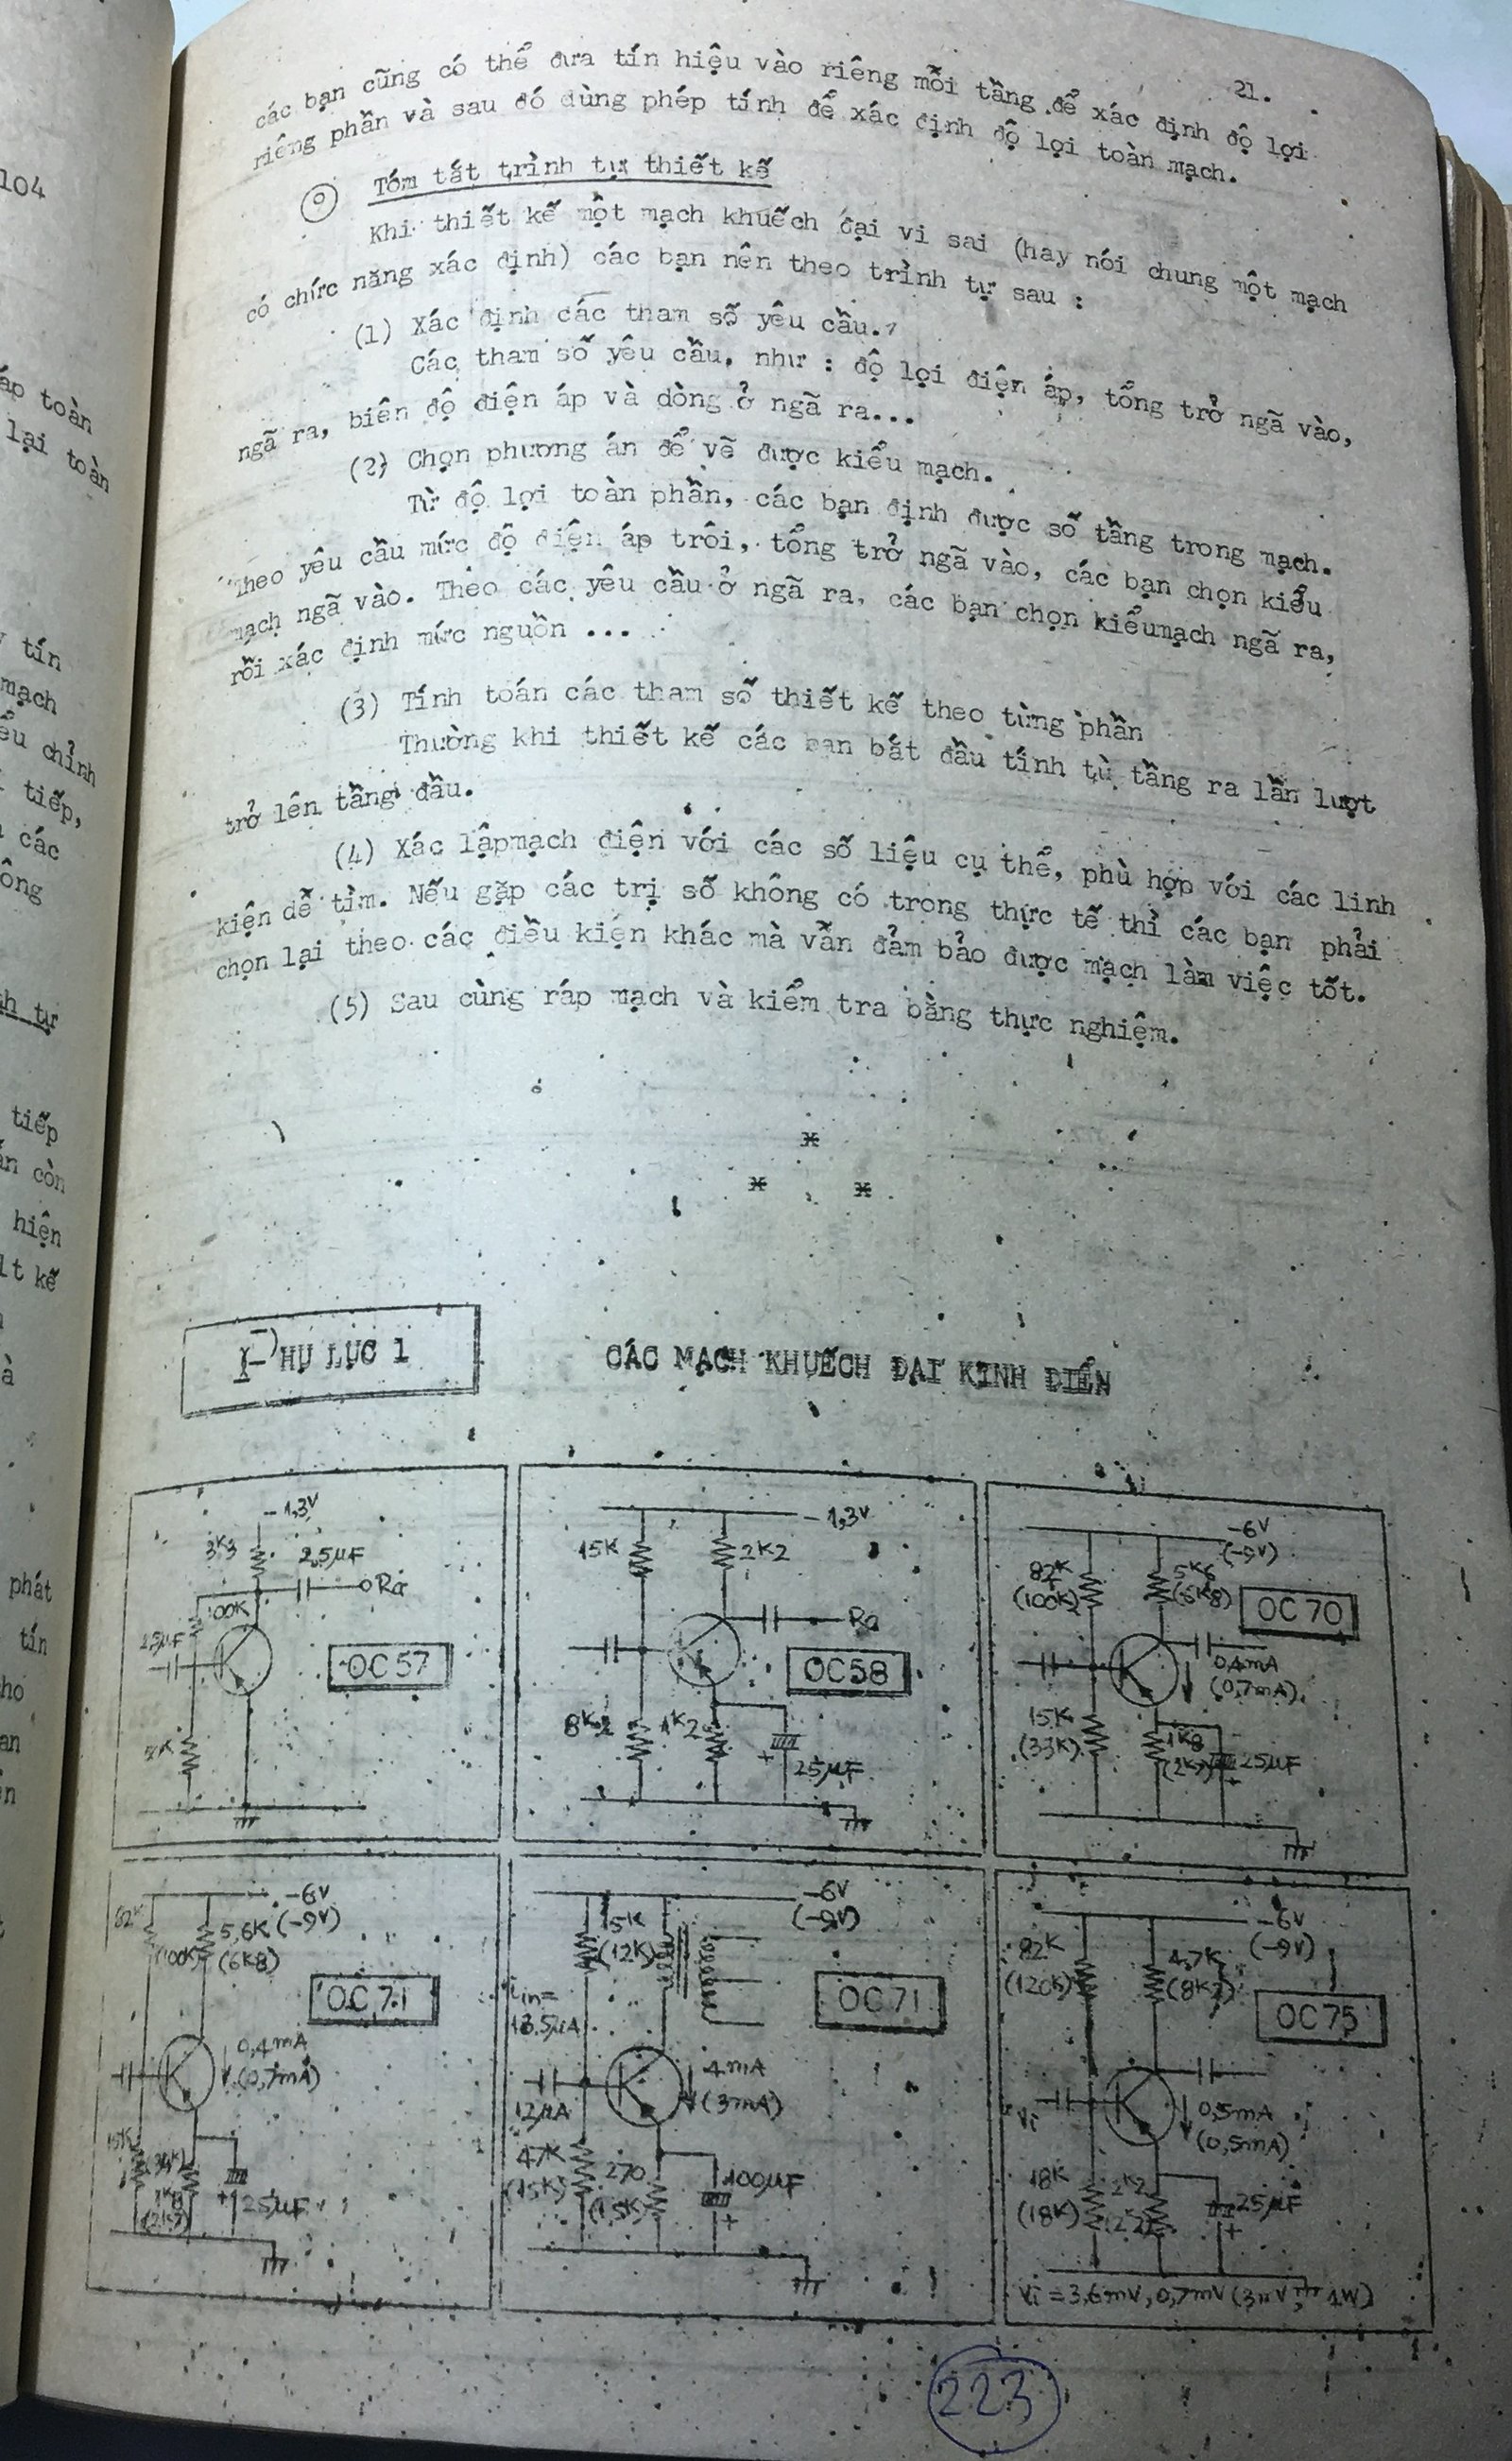 21.
các bạn cũng có thể đưa tín hiệu vào riêng mỗi tầng để xác định độ lợi
riêng phần và sau đó dùng phép tính để xác định độ lợi toàn mạch.
Tóm tắt trình tự thiết kế
Khi thiết kế một mạch khuếch đại vi sai (hay nói chung một mạch
có chức năng xác định) các bạn nên theo trình tự sau :
(1) Xác định các tham số yêu cầu.
Các tham số yêu cầu. như : độ lợi điện áp, tổng trở ngã vào,
ngã ra, biên độ điện áp và dòng ở ngã ra...
(2) Chọn phương án để vẽ được kiểu mạch.
Từ độ lợi toàn phần, các bạn định được số tầng trong mạch.
Theo yêu cầu mức độ điện áp trôi, tổng trở ngã vào, các bạn chọn kiểu
mạch ngã vào. Theo các yêu cầu ở ngã ra, các bạn chọn kiểumạch ngã ra,
rồi xác định mức nguồn ...
(3) Tính toán các tham số thiết kế theo từng phần
Thường khi thiết kế các bạn bắt đầu tính từ tầng ra lần lượt
trở lên tầng đầu.
(4) Xác lậpmạch điện với các số liệu cụ thể, phù hợp với các linh
kiện dễ tìm. Nếu gặp các trị số không có trong thực tế thì các bạn phải
chọn lại theo các điều kiện khác mà vẫn đảm bảo được mạch làm việc tốt.
(5) Sau cùng ráp mạch và kiểm tra bằng thực nghiệm.
* * *
PHỤ LỤC 1
CÁC MẠCH KHUẾCH ĐẠI KINH ĐIỂN
-1,3V
3K3
2,5µF
Ra
100K
2,5µF
OC57
-1,3V
15K
2K2
Ra
OC58
8K2
1K2
+
25µF
-6V
(-9V)
82K
(100K)
5K6
(6K8)
OC70
0,4mA
(0,7mA)
15K
(33K)
1K8
25µF
+
-6V
(-9V)
82K
(100K)
5,6K
(6K8)
OC71
0,4mA
(0,7mA)
15K
1K8
+
25µF
-6V
(-9V)
(12K)
OC71
13.5µA
12µA
4mA
(3mA)
47K
(15K)
270
100µF
+
-6V
(-9V)
82K
(120K)
4,7K
OC75
Vi
0,5mA
(0,5mA)
18K
(18K)
2K2
25µF
+
Vi = 3,6mV, 0,7mV
223
104
áp toàn
lại toàn
tín
mạch
chỉnh
tiếp,
các
tiếp
còn
hiện
kế
phát
tín